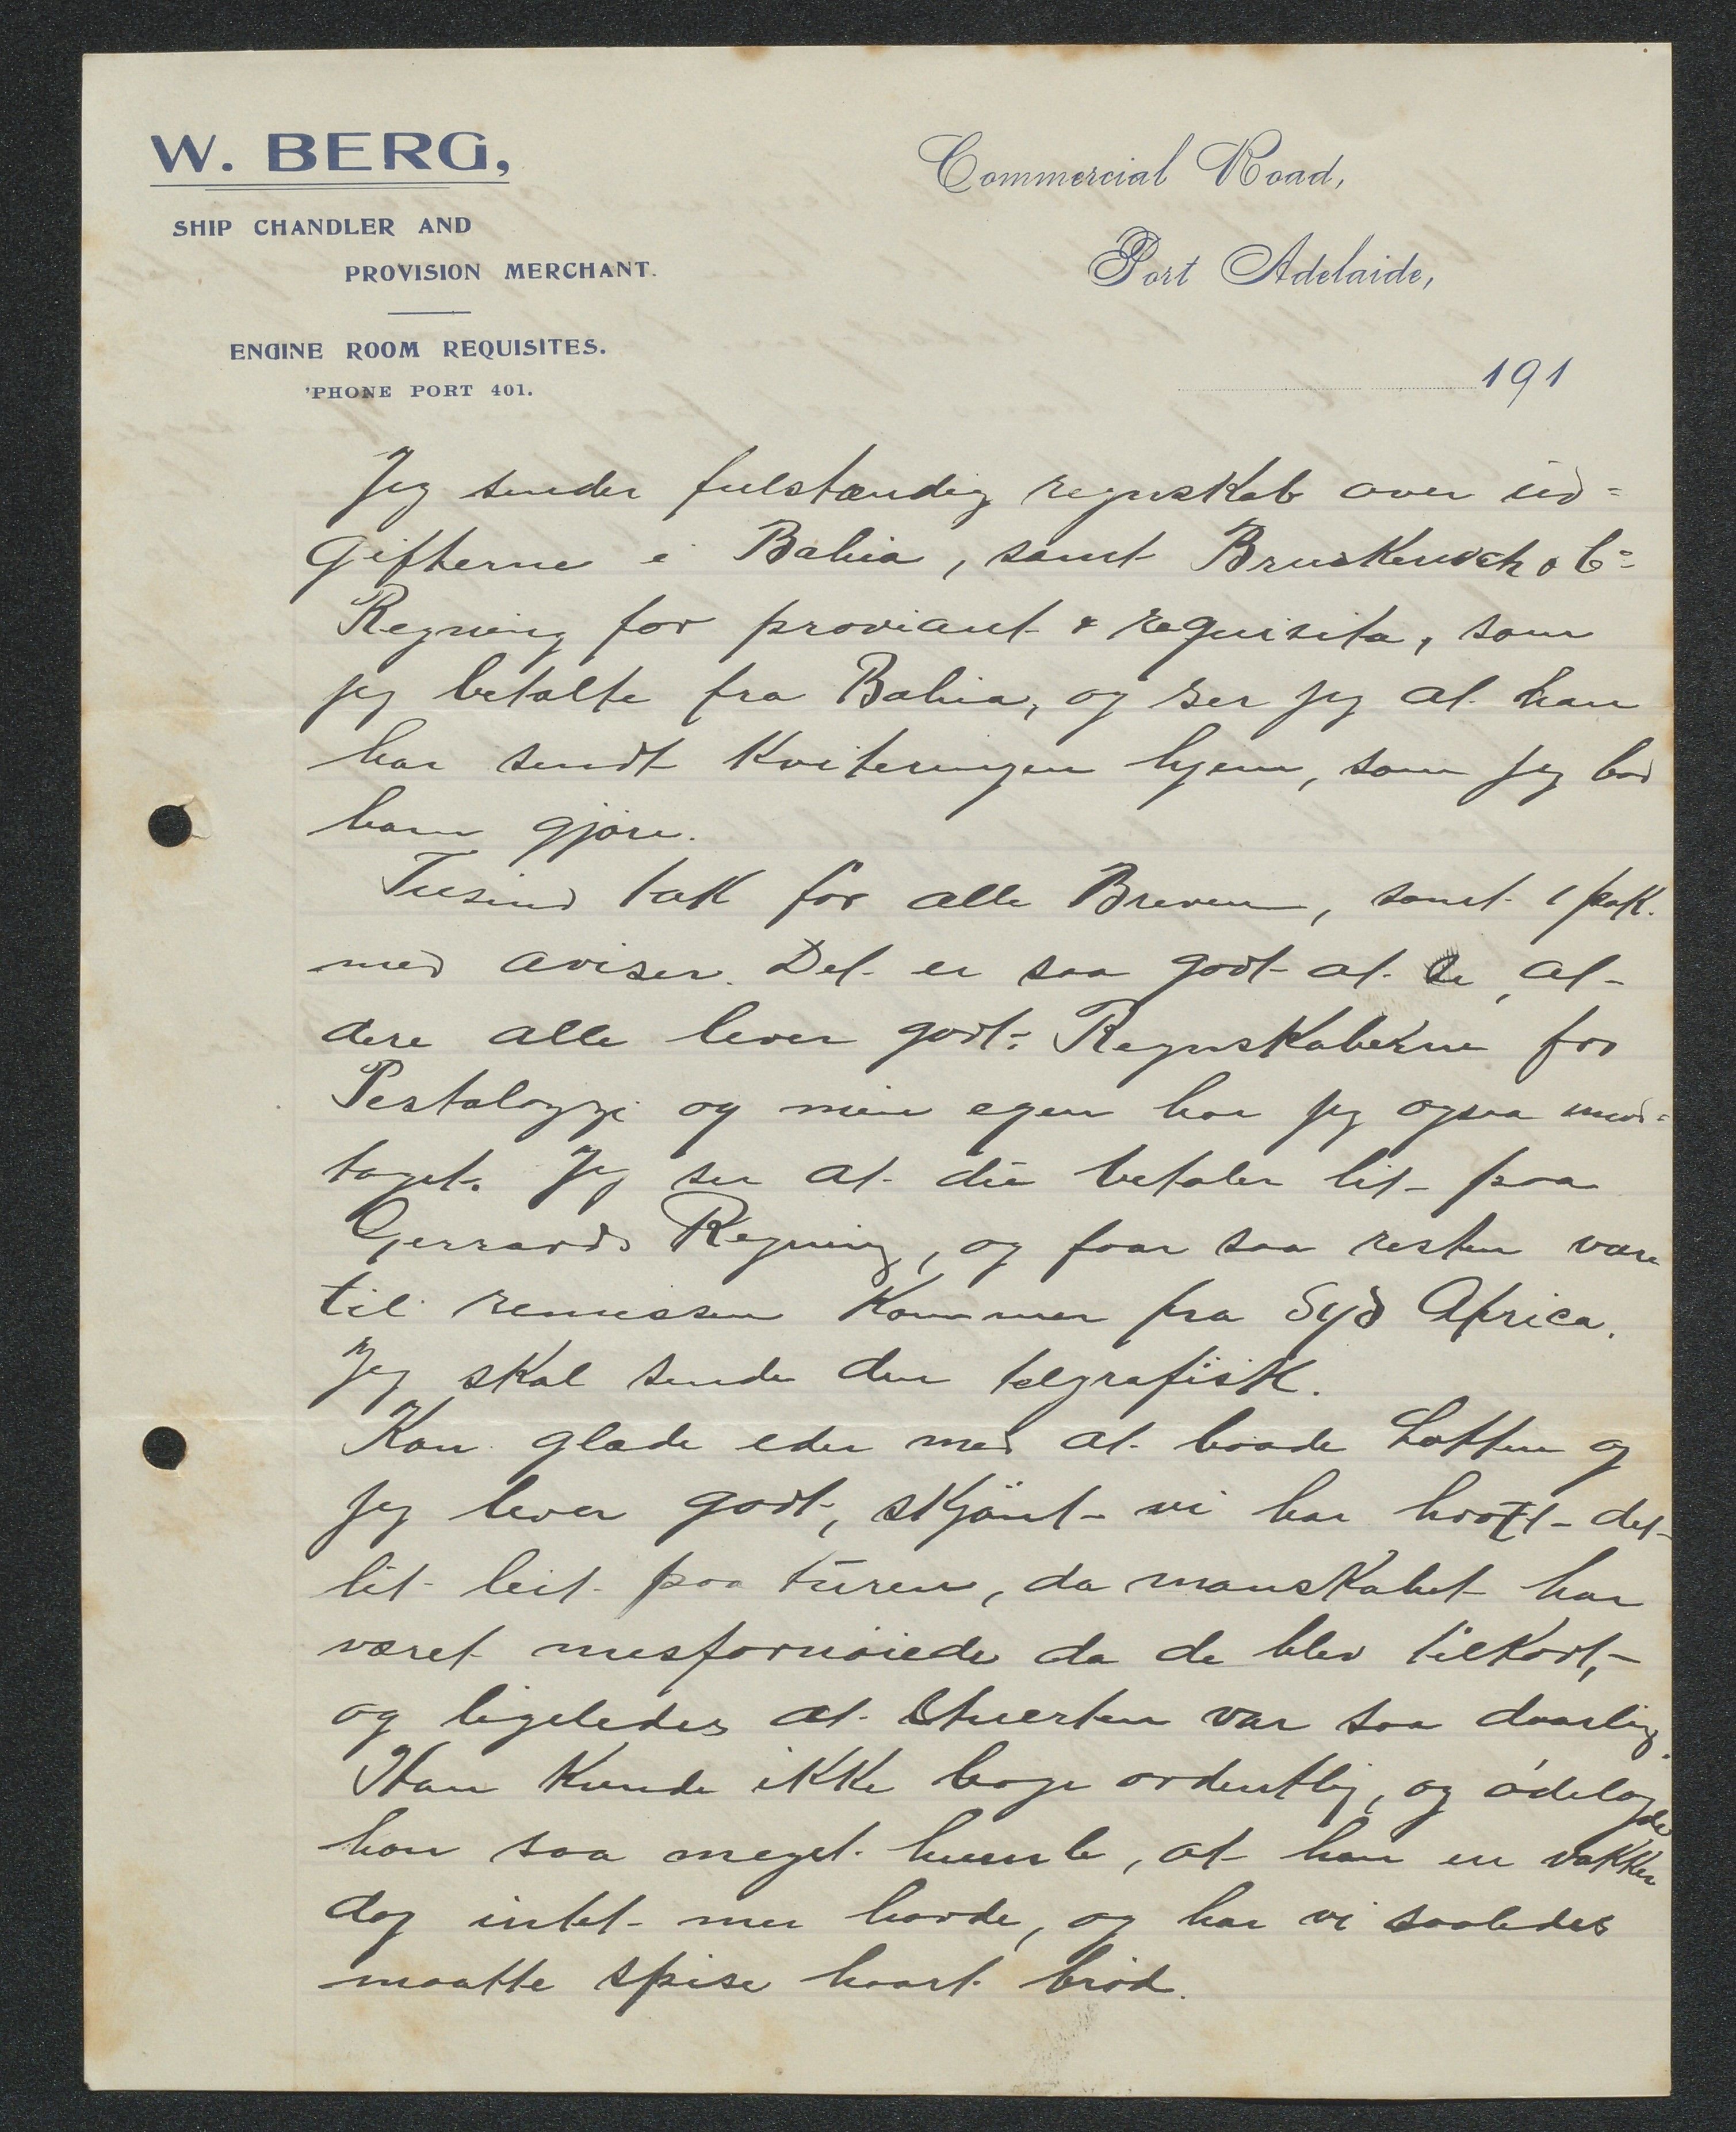 W. BERG,
SHIP CHANDLER AND
PROVISION MERCHANT.
ENGINE ROOM REQUISITES.
'PHONE PORT 401.
Commercial Road,
Port Adelaide,
191
Jeg sender fulstændig regnskab over ud=
gifterne i Bahia, samt & Co
Regning for proviant & requisita, som
jeg betalte fra Bahia, og ser jeg at han
har sendt kviteringen hjem, som jeg bad
ham gjøre.
Tusind tak for alle Breven, samt 1 pak.
med aviser. Det er saa godt at se, at
dere alle lever godt. Regnskaberne for
Pestalozzi og min egen har jeg ogsaa mod=
taget. Jeg ser at du betaler lit paa
Gerrards Regning, og faar saa resten være
til remissen kommer fra Syd Africa.
Jeg skal sende den telgrafisk.
Kan glæde eder med at baade Lotten og
jeg lever godt, skjönt vi har havt det
lit leit paa turen, da manskabet har
været misfornøiede da de blev tilkort,
og ligeledes at Stuerten var saa daarlig.
Han kunde ikke bage ordentlig, og ödelagde
han saa meget humle, at han en vakker
dag intet mer havde, og har vi saaledes
maatte spise haart bröd.